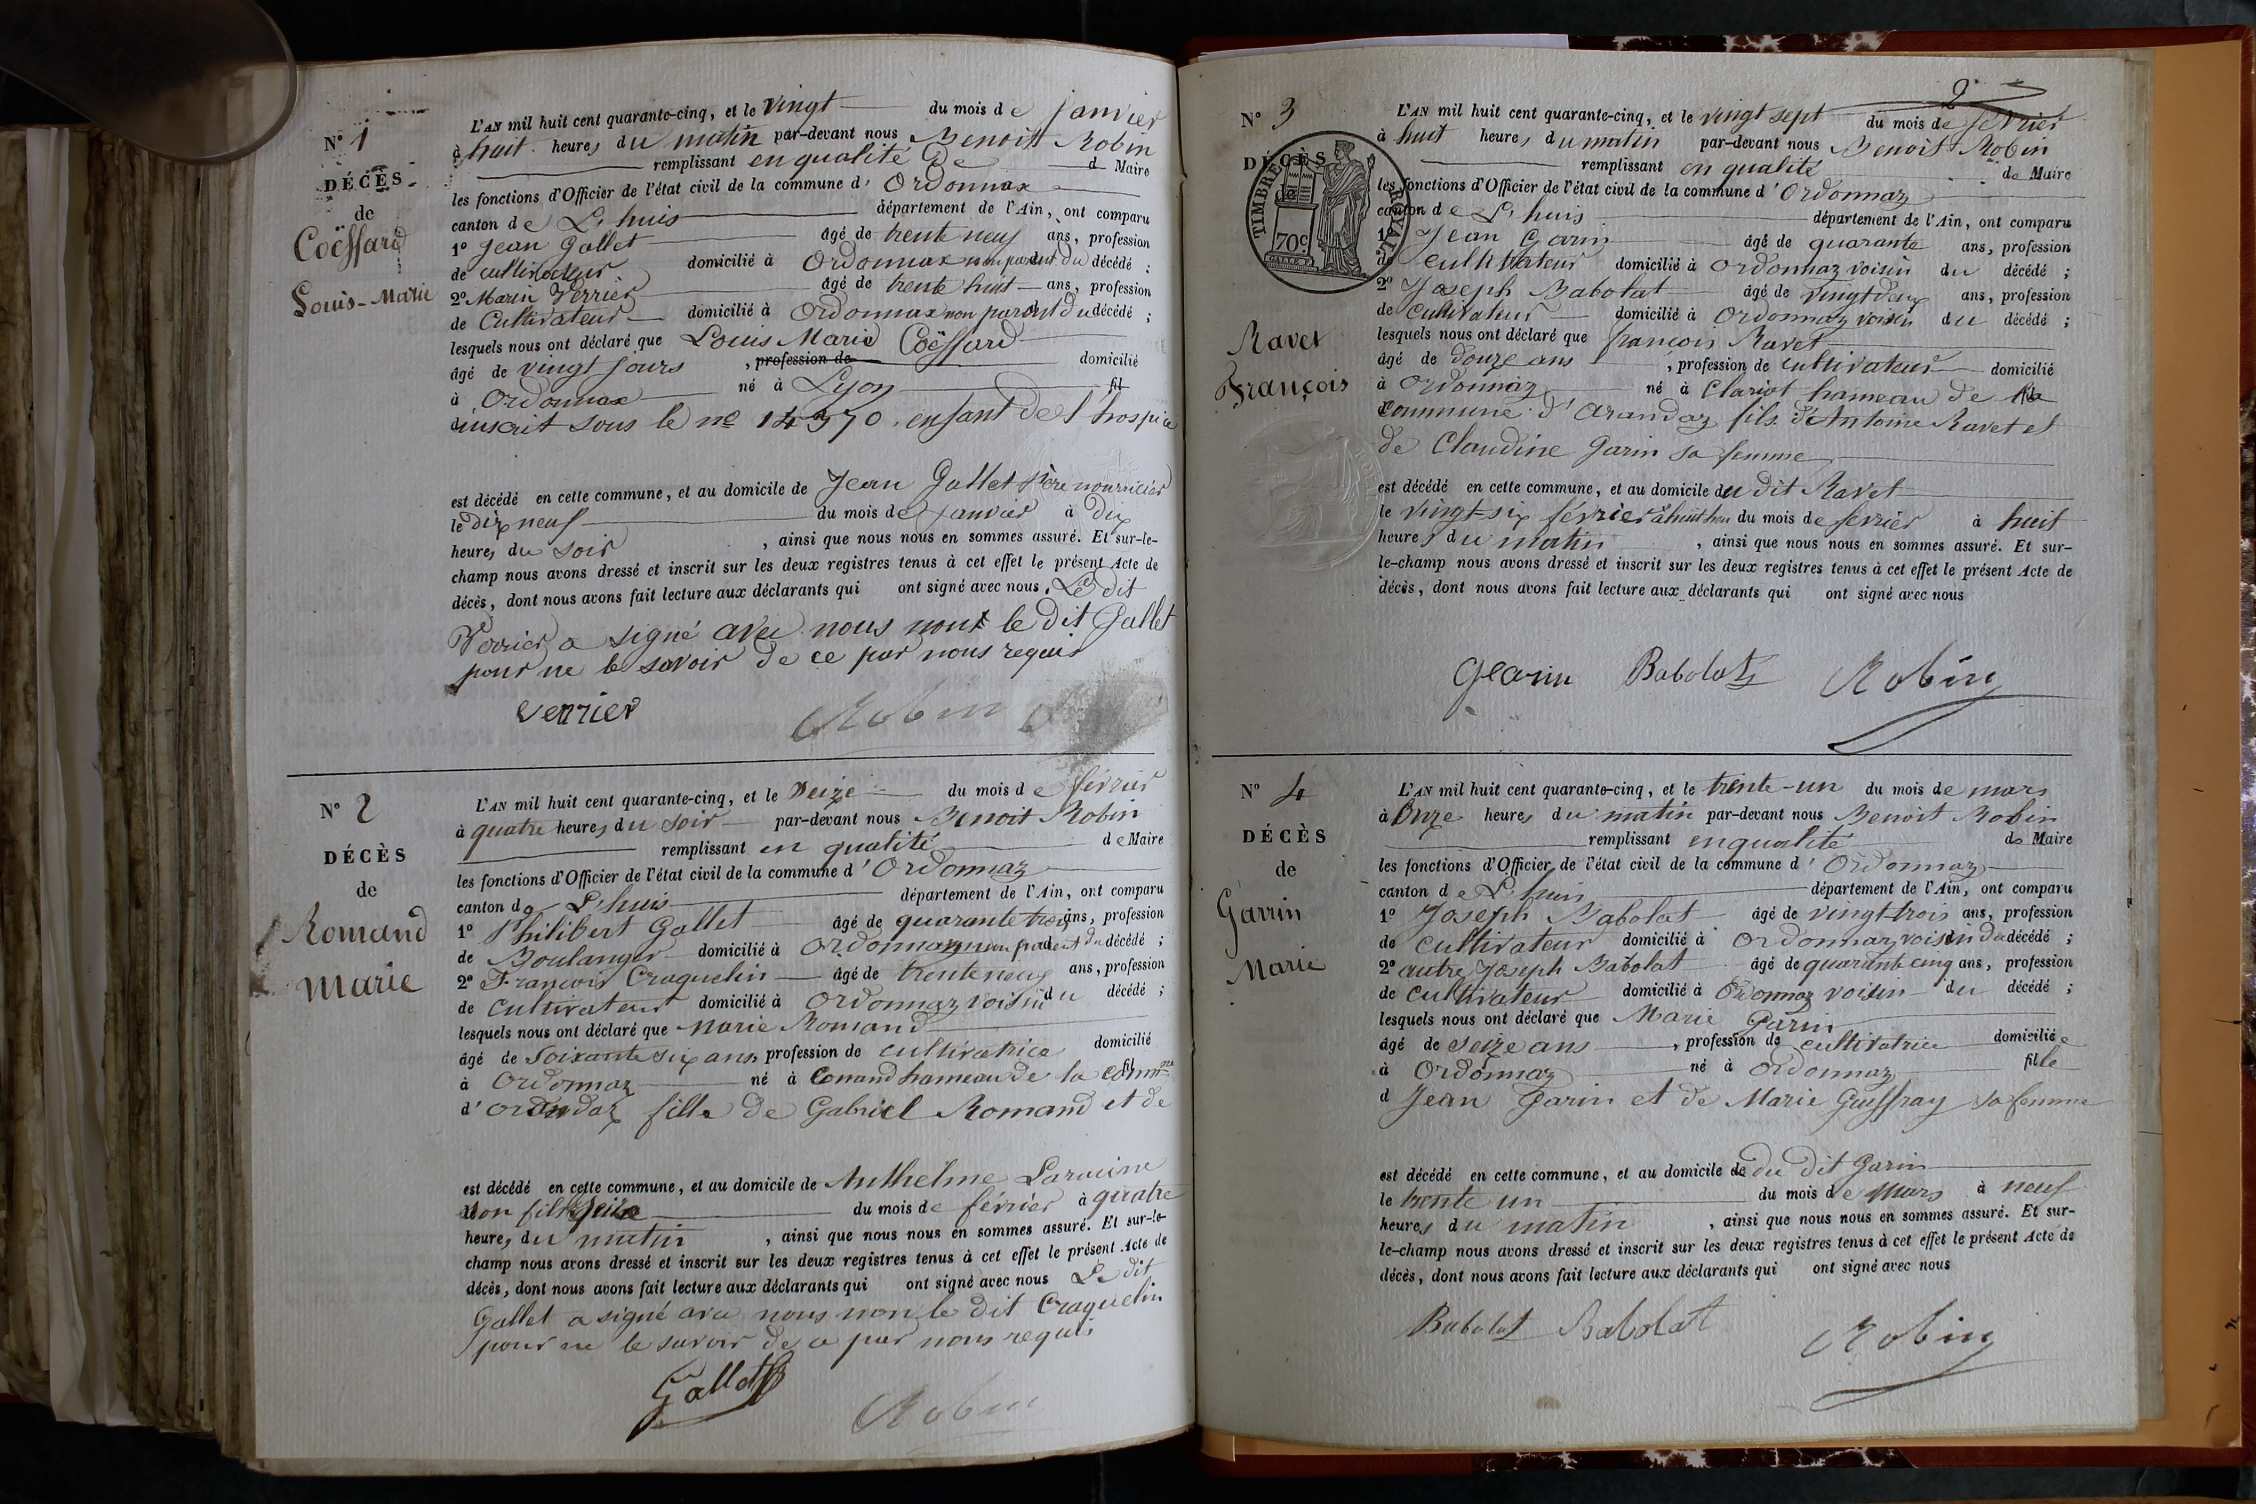 N° 1
DÉCÈS
de
Coëffard
Louis-Marie
L'AN mil huit cent quarante-cinq, et le vingt du mois de janvier
à huit heures du matin par-devant nous Benoit Robin
remplissant en qualité de d Maire
les fonctions d'Officier de l'état civil de la commune d' Ordonnax
canton de L'huis département de l'Ain, ont comparu
1° Jean Gallet âgé de trente neuf ans, profession
de cultivateur domicilié à Ordonnax non parent du décédé ;
2° Marin Verrier âgé de trente huit ans, profession
de Cultivateur domicilié à Ordonnax non parent du décédé ;
lesquels nous ont déclaré que Louis Marie Coëffard
âgé de vingt jours , profession de domicilié
à Ordonnax né à Lyon fil
inscrit sous le n° 14370 enfant de l'hospice
est décédé en cette commune, et au domicile de Jean Gallet Père nourricier
le dix neuf du mois de janvier à dix
heures du soir , ainsi que nous nous en sommes assuré. Et sur-le-
champ nous avons dressé et inscrit sur les deux registres tenus à cet effet le présent Acte de
décès, dont nous avons fait lecture aux déclarants qui ont signé avec nous. Le dit
Verrier a signé avec nous non le dit Gallet
pour ne le savoir de ce par nous requis
Verrier Robin
N° 2
DÉCÈS
de
Romand
Marie
L'AN mil huit cent quarante-cinq, et le seize du mois de février
à quatre heures du soir par-devant nous Benoit Robin
remplissant en qualité de Maire
les fonctions d'Officier de l'état civil de la commune d' Ordonnaz
canton de L'huis département de l'Ain, ont comparu
1° Philibert Gallet âgé de quarante trois ans, profession
de Boulanger domicilié à Ordonnaz non parent du décédé ;
2° François Craquelin âgé de trente neuf ans, profession
de cultivateur domicilié à Ordonnaz voisin du décédé ;
lesquels nous ont déclaré que Marie Romand
âgé de soixante six ans profession de cultivatrice domicilié
à Ordonnaz né à Conand hameau de la comm
d' fille de Gabriel Romand et de
est décédé en cette commune, et au domicile de Anthelme
son fils seize du mois de février à quatre
heures du matin , ainsi que nous nous en sommes assuré. Et sur-le-
champ nous avons dressé et inscrit sur les deux registres tenus à cet effet le présent Acte de
décès, dont nous avons fait lecture aux déclarants qui ont signé avec nous Le dit
Gallet a signé avec nous non le dit Craquelin
pour ne le savoir de ce par nous requis
Gallet Robin
2
N° 3
DÉCÈS
TIMBRE ROYAL
70c
Ravet
François
L'AN mil huit cent quarante-cinq, et le vingt sept du mois de février
à huit heures du matin par-devant nous Benoit Robin
remplissant en qualité de Maire
les fonctions d'Officier de l'état civil de la commune d' Ordonnaz
canton de L'huis département de l'Ain, ont comparu
1° Jean Garin âgé de quarante ans, profession
de cultivateur domicilié à Ordonnaz voisin du décédé ;
2° Joseph Babolat âgé de vingt deux ans, profession
de cultivateur domicilié à Ordonnaz voisin du décédé ;
lesquels nous ont déclaré que françois Ravet
âgé de douze ans , profession de cultivateur domicilié
à Ordonnaz né à Clariot hameau de la
commune d'Arandaz fils d'Antoine Ravet et
de Claudine Garin sa femme
est décédé en cette commune, et au domicile du dit Ravet
le vingt-six février du mois de fevrier à huit
heures du matin , ainsi que nous nous en sommes assuré. Et sur-
le-champ nous avons dressé et inscrit sur les deux registres tenus à cet effet le présent Acte de
décès, dont nous avons fait lecture aux déclarants qui ont signé avec nous
Garin Babolat Robin
N° 4
DÉCÈS
de
Garrin
Marie
L'AN mil huit cent quarante-cinq, et le trente-un du mois de mars
à Onze heures du matin par-devant nous Benoit Robin
remplissant en qualité de Maire
les fonctions d'Officier de l'état civil de la commune d' Ordonnaz
canton de L'huis département de l'Ain, ont comparu
1° Joseph Babolat âgé de vingt-trois ans, profession
de cultivateur domicilié à Ordonnaz voisin du décédé ;
2° autre Joseph Babolat âgé de quarante cinq ans, profession
de cultivateur domicilié à Ordonnaz voisin du décédé ;
lesquels nous ont déclaré que Marie Garin
âgé de seize ans , profession de cultivatrice domiciliée
à Ordonnaz né à Ordonnaz fille
d Jean Garin et de Marie Guiffray sa femme
est décédé en cette commune, et au domicile de du dit Garin
le trente un du mois de Mars à neuf
heures du matin , ainsi que nous nous en sommes assuré. Et sur-
le-champ nous avons dressé et inscrit sur les deux registres tenus à cet effet le présent Acte de
décès, dont nous avons fait lecture aux déclarants qui ont signé avec nous
Babolat Babolat Robin